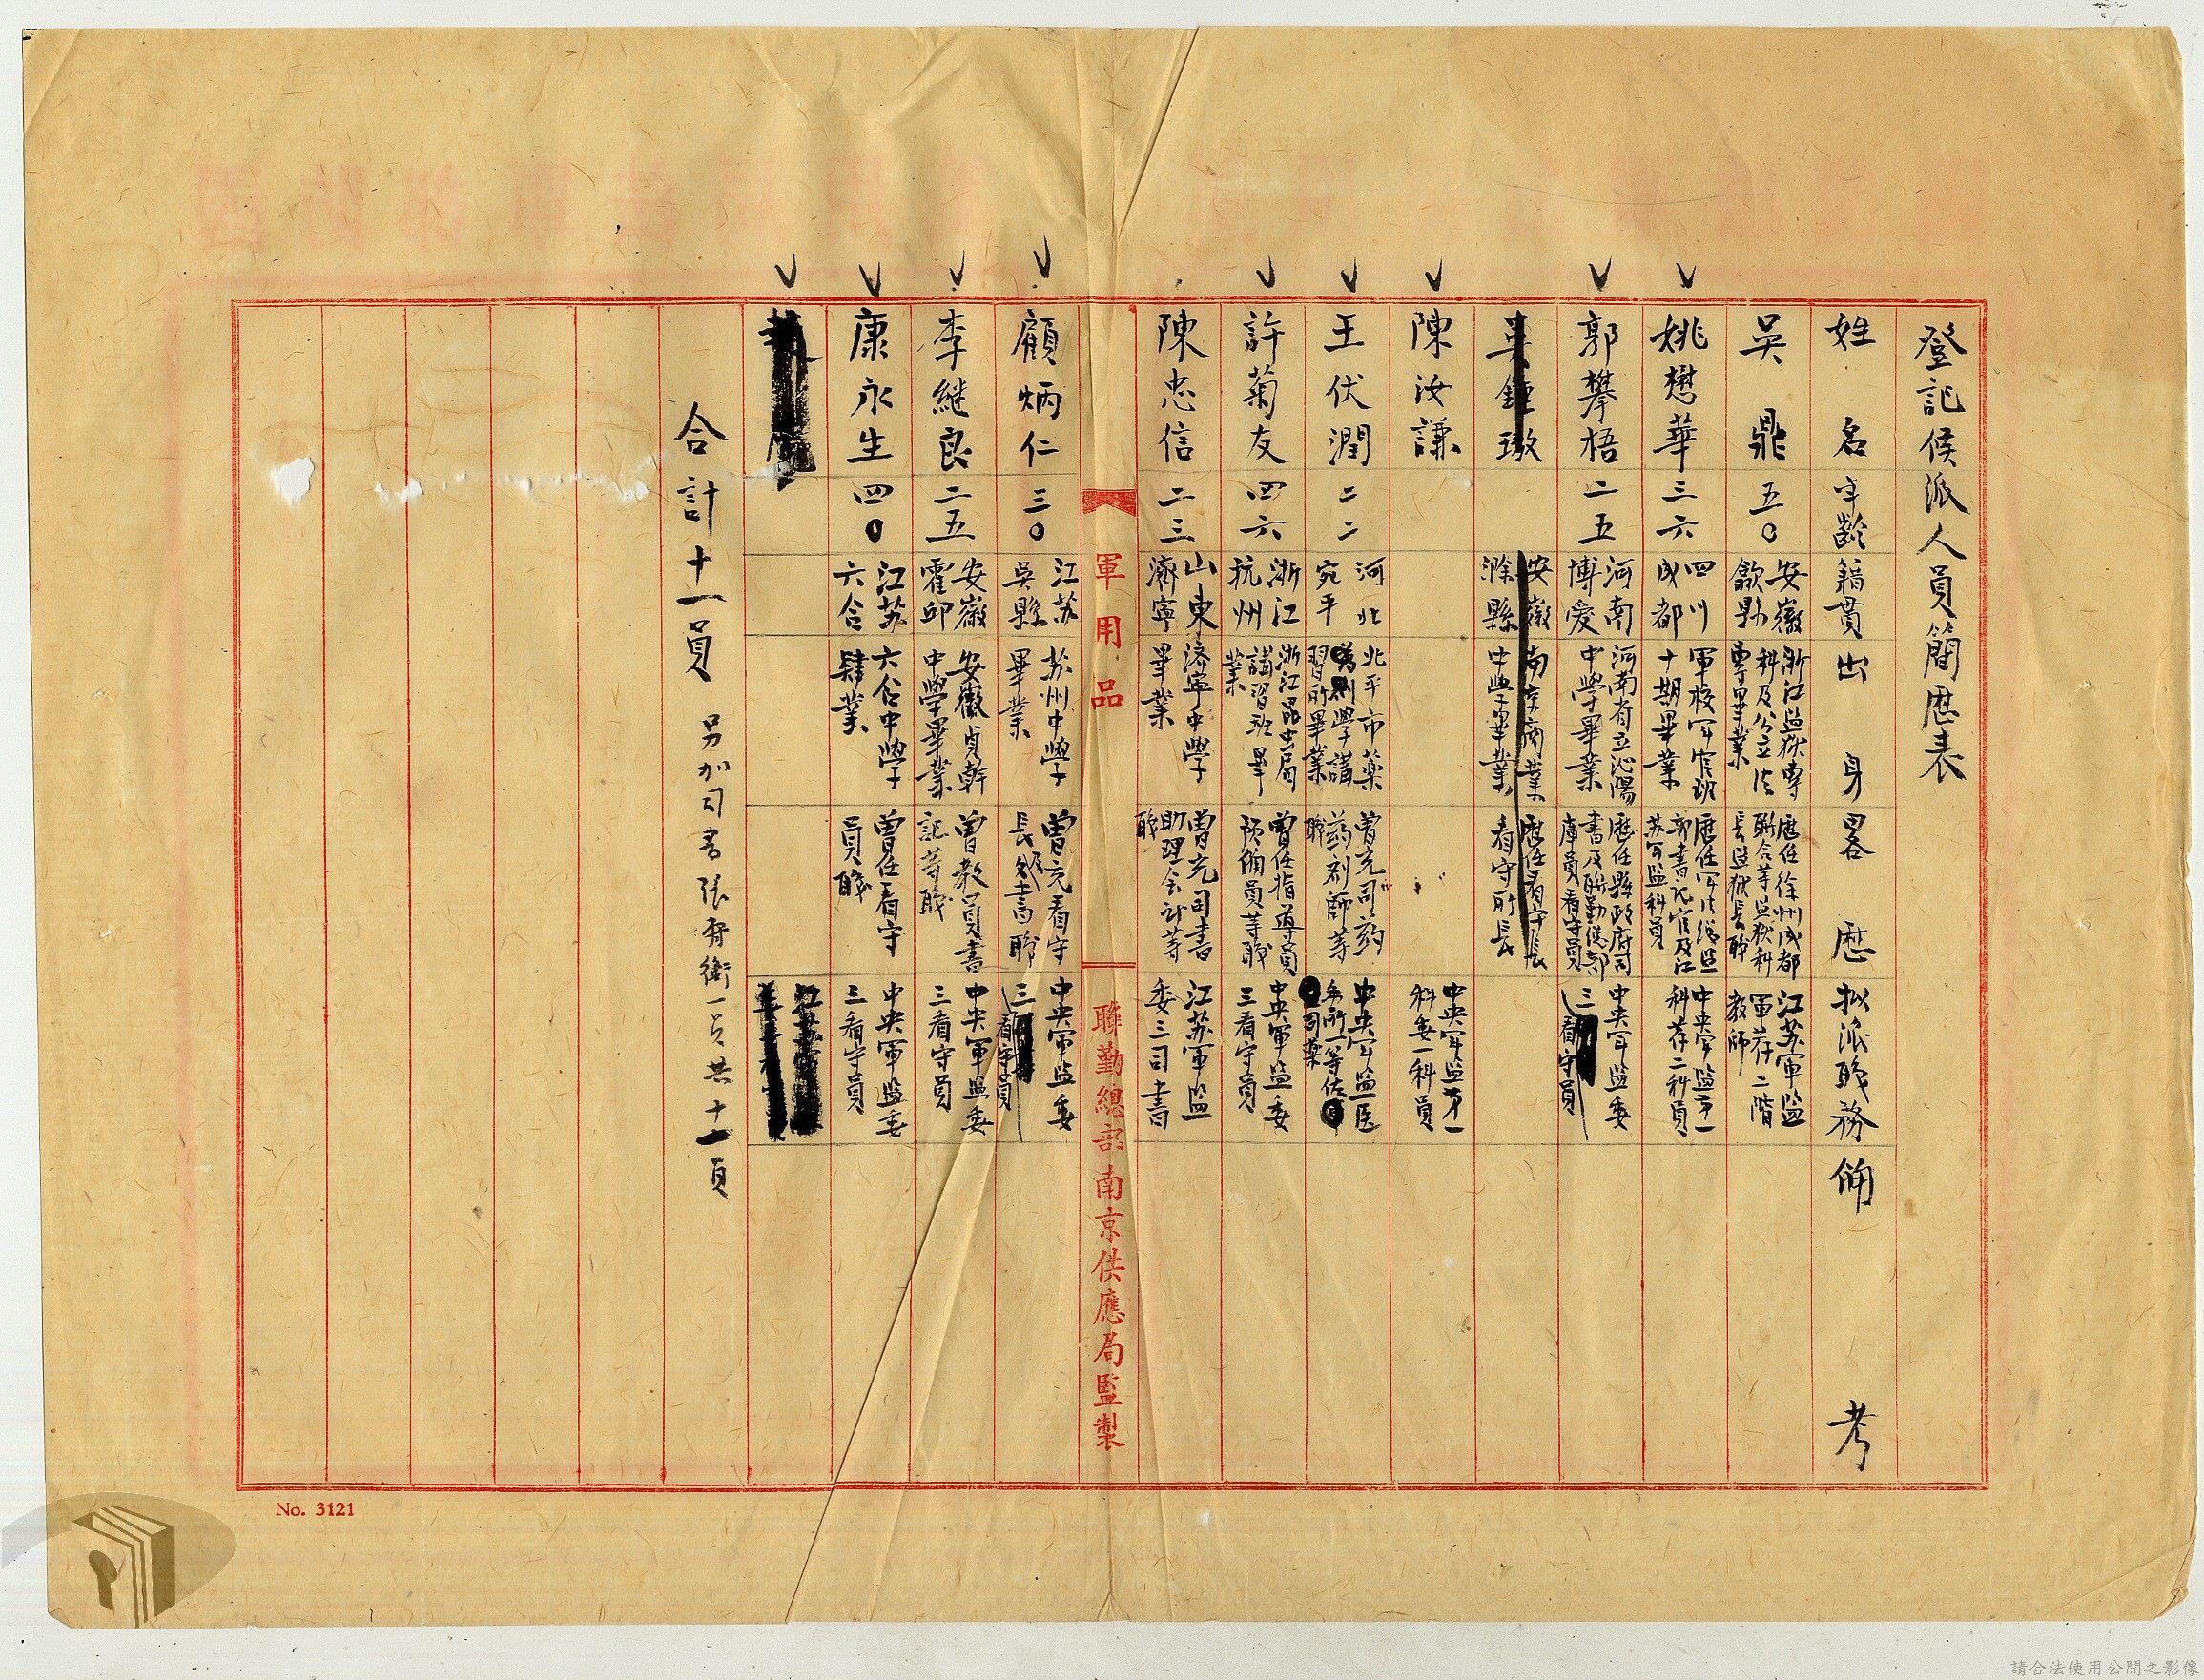 登記候派人員簡歷表
姓名 年齡 籍貫 出身 畧歷 拟派职務 備考
吳鼎 五〇 安徽歙縣 浙江監獄專科及公立法專畢業 歷任徐州成都聯合等監獄科長監獄長职 江苏軍監軍荐二階教師
姚懋華 三六 四川成都 軍校军官班十期畢業 歷任军法總監部書記官及江苏军監科員 中央军監第一科荐二科員
郭攀梧 二五 河南博愛 河南省立沁陽中學畢業 歷任縣政府司書及聯勤總部庫員看守員 中央军監委三看守員
吳鍾璈 安徽滁縣 南京商業中學畢業 歷任看守長看守所長
陳汝謙 中央军監第一科委一科員
王伏潤 二二 河北宛平 北平市藥學講習所畢業 曾充司药药剂師等職 中央军監医务所一等佐司藥
許菊友 四六 浙江杭州 浙江昆虫局講習班畢業 曾任指導員預備員等職 中央軍監委三看守員
陳忠信 二三 山東濟寧 济寧中學畢業 曾充司書助理会計等職 江苏軍監委三司書
軍用品
聯勤總部南京供應局監製
顧炳仁 三〇 江苏吳縣 苏州中學畢業 曾充看守長及書職 中央軍監委三看守員
李繼良 二五 安徽霍邱 安徽貞幹中學畢業 曾教員書記等职 中央軍監委三看守員
康永生 四〇 江苏六合 六合中學肄業 曾任看守員职 中央軍監委三看守員
合計十一員 另加司書張衡一員共十一員
No. 3121
請合法使用公開之影像